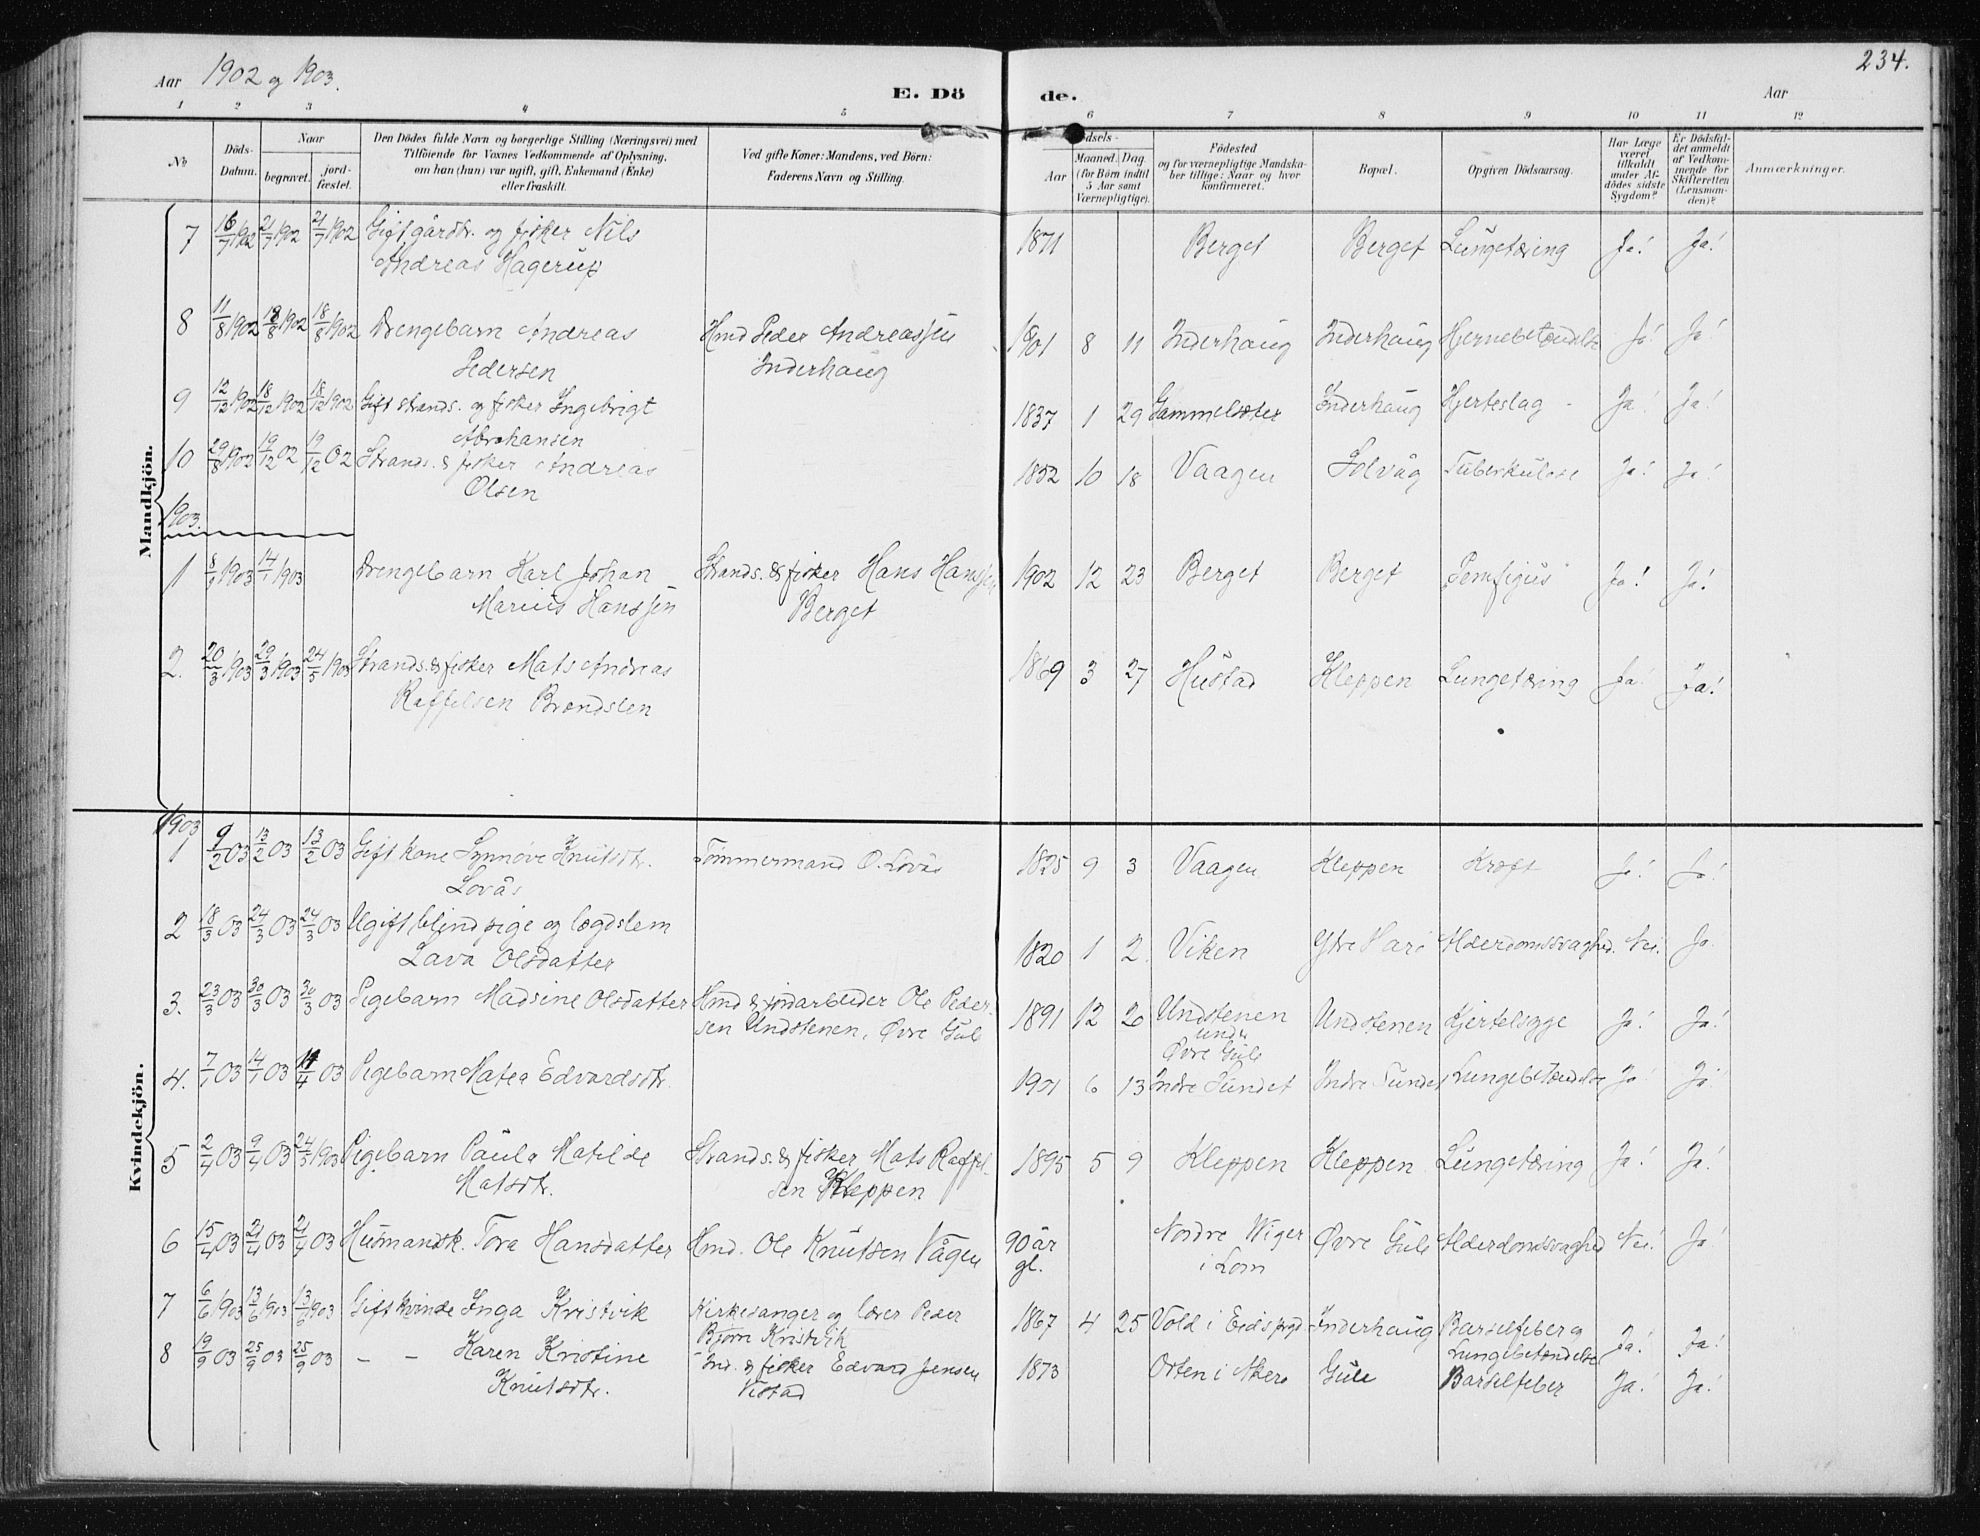 Aar 1902 og 1903.
E. Dö de.
Aar
234.
1 2 3 4 5 6 7 8 9 10 11 12
No
Döds-Datum.
Naar
begravet.
jord-fæstet.
Den Dödes fulde Navn og borgerlige Stilling (Næringsvei) med
Tilföiende for Voxnes Vedkommende af Oplysning,
om han (hun) var ugift, gift, Enkemand (Enke)
eller fraskilt.
Ved gifte Koner: Mandens, ved Börn:
Faderens Navn og Stilling.
Aar
Maaned. Dag.
(for Börn indtil
5 Aar samt
Værnepligtige).
Födested
og for værnepligtige Mandska-
ber tillige: Naar og hvor
konfirmeret.
Bopæl.
Opgiven Dödsaarsag.
Har Læge
været
tilkaldt
under Af-
dödes sidste
Sygdom?
Er Dödsfal-
det anmeldt
af Vedkom-
mende for
Skifteretten
(Lensman-
den)?
Anmærkninger.
Mandkjön.
7 16/7 1902 21/7 1902 21/7 1902 Gift gårdbr. og fisker Nils 1871 Berget Berget Lungetæring Ja! Ja!
Andreas Hagerup
8 11/8 1902 18/8 1902 18/8 1902 Drengebarn Andreas Hmd Peder Andreassen 1901 8 11 Inderhaug Inderhaug Hjernebetændelse Ja! Ja!
Pedersen Inderhaug
9 12/12 1902 18/12 1902 18/12 1902 Gift strands. og fisker Ingebrigt 1837 1 29 Gammelsæter Inderhaug Hjerteslag Ja! Ja!
Abrahamsen
10 29/8 1902 19/12 02 19/12 02 Strands. & fisker Andreas 1852 10 18 Vaagen Solvåg Tuberkulose Ja! Ja!
Olsen
1903.
1 8/1 1903 14/1 1903 Drengebarn Karl Johan Strands. & fisker Hans Hanssen 1902 12 23 Berget Berget "Pemfigus" Ja! Ja!
Marius Hanssen Berget
2. 20/3 1903 29/3 1903 24/5 1903 Strands. & fisker Mats Andreas 1869 3 27 Hustad Kleppen Lungetæring Ja! Ja!
Raffelsen Brandslen
Kvindekjön.
1903
1 9/2 03 13/2 03 13/2 03 Gift kone Synnøve Knutsdtr. Tømmermand O. Lovås 1825 9 3 Vaagen Kleppen Kræft Ja! Ja!
Lovås
2 18/3 03 24/3 03 24/3 03 Ugift blind pige og lægdslem 1820 1 2 Viken Ytre Hari Alderdomssvaghed. Nei. Ja
Lava Olsdatter
3. 23/3 03 30/3 03 30/3 03 Pigebarn Madsine Olsdatter Hmd & jordarbeider Ole Peder- 1891 12 20 Undstenen Undstenen Kjertelsyge Ja! Ja!
sen Undstenen, Øvre Gule under
Øvre Gule
4. 7/1 03 14/1 03 14/4 03 Pigebarn Matea Edvardsdtr. 1901 6 13 Indre Sundet Indre Sundet Lungebetændelse Ja! Ja
5 2/4 03 9/4 03 24/5 1903 Pigebarn Paula Matilde Strands. & fisker Mats Raffel- 1895 5 9 Kleppen Kleppen Lungetæring Ja! Ja!
Matsdtr. sen Kleppen
6 15/4 03 21/4 03 21/4 03 Husmandsk. Tora Hansdatter Hmd. Ole Knutsen Vågen 90 år Nordre Wiger Øvre Gule Alderdomssvaghed Nei! Ja!
gl. i Lom
7 6/6 1903 13/6 1903 13/6 1903 Gift kvinde Inga Kristvik Kirkesanger og lærer Peder 1867 4 25 Vold i Eidsbygd Inderhaug Barselfeber og Ja! Ja!
Bjørn Kristvik Lungebetændelse
8 19/9 03 25/9 03 25/9 03 – – Karen Kristine Ind. & fisker Edvard Jensen 1873 Orten i Akerø Gule Barselfeber Ja! Ja!
Knutsdtr. Vestad